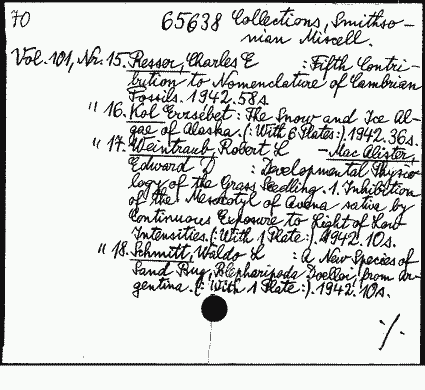 70 65638 Collections, Smithso-
nian Miscell.
Vol. 101, Nr. 15. Resser, Charles E : Fifth Contri-
bution to Nomenclature of Cambrian
Fossils. 1942. 58 s.
" 16. Kol Erzsébet: The Snow and Ice Al-
gae of Alaska. (: With 6 Plates:). 1942. 36 s.
" 17. Weintraub, Robert L - Mac Alister,
Edward D : Developmental Physio-
logy of the Grass Seedling. 1. Inhibition
of the Mesocotyl of Avena sativa by
Continuous Exposure to Light of Low
Intensities. (: With 1 Plate:). 1942. 10 s.
" 18. Schmitt, Waldo L : A New Species of
Sand Bug, Blepharipoda Doelloi, from Ar-
gentina. (: With 1 Plate:). 1942. 10 s.
./.